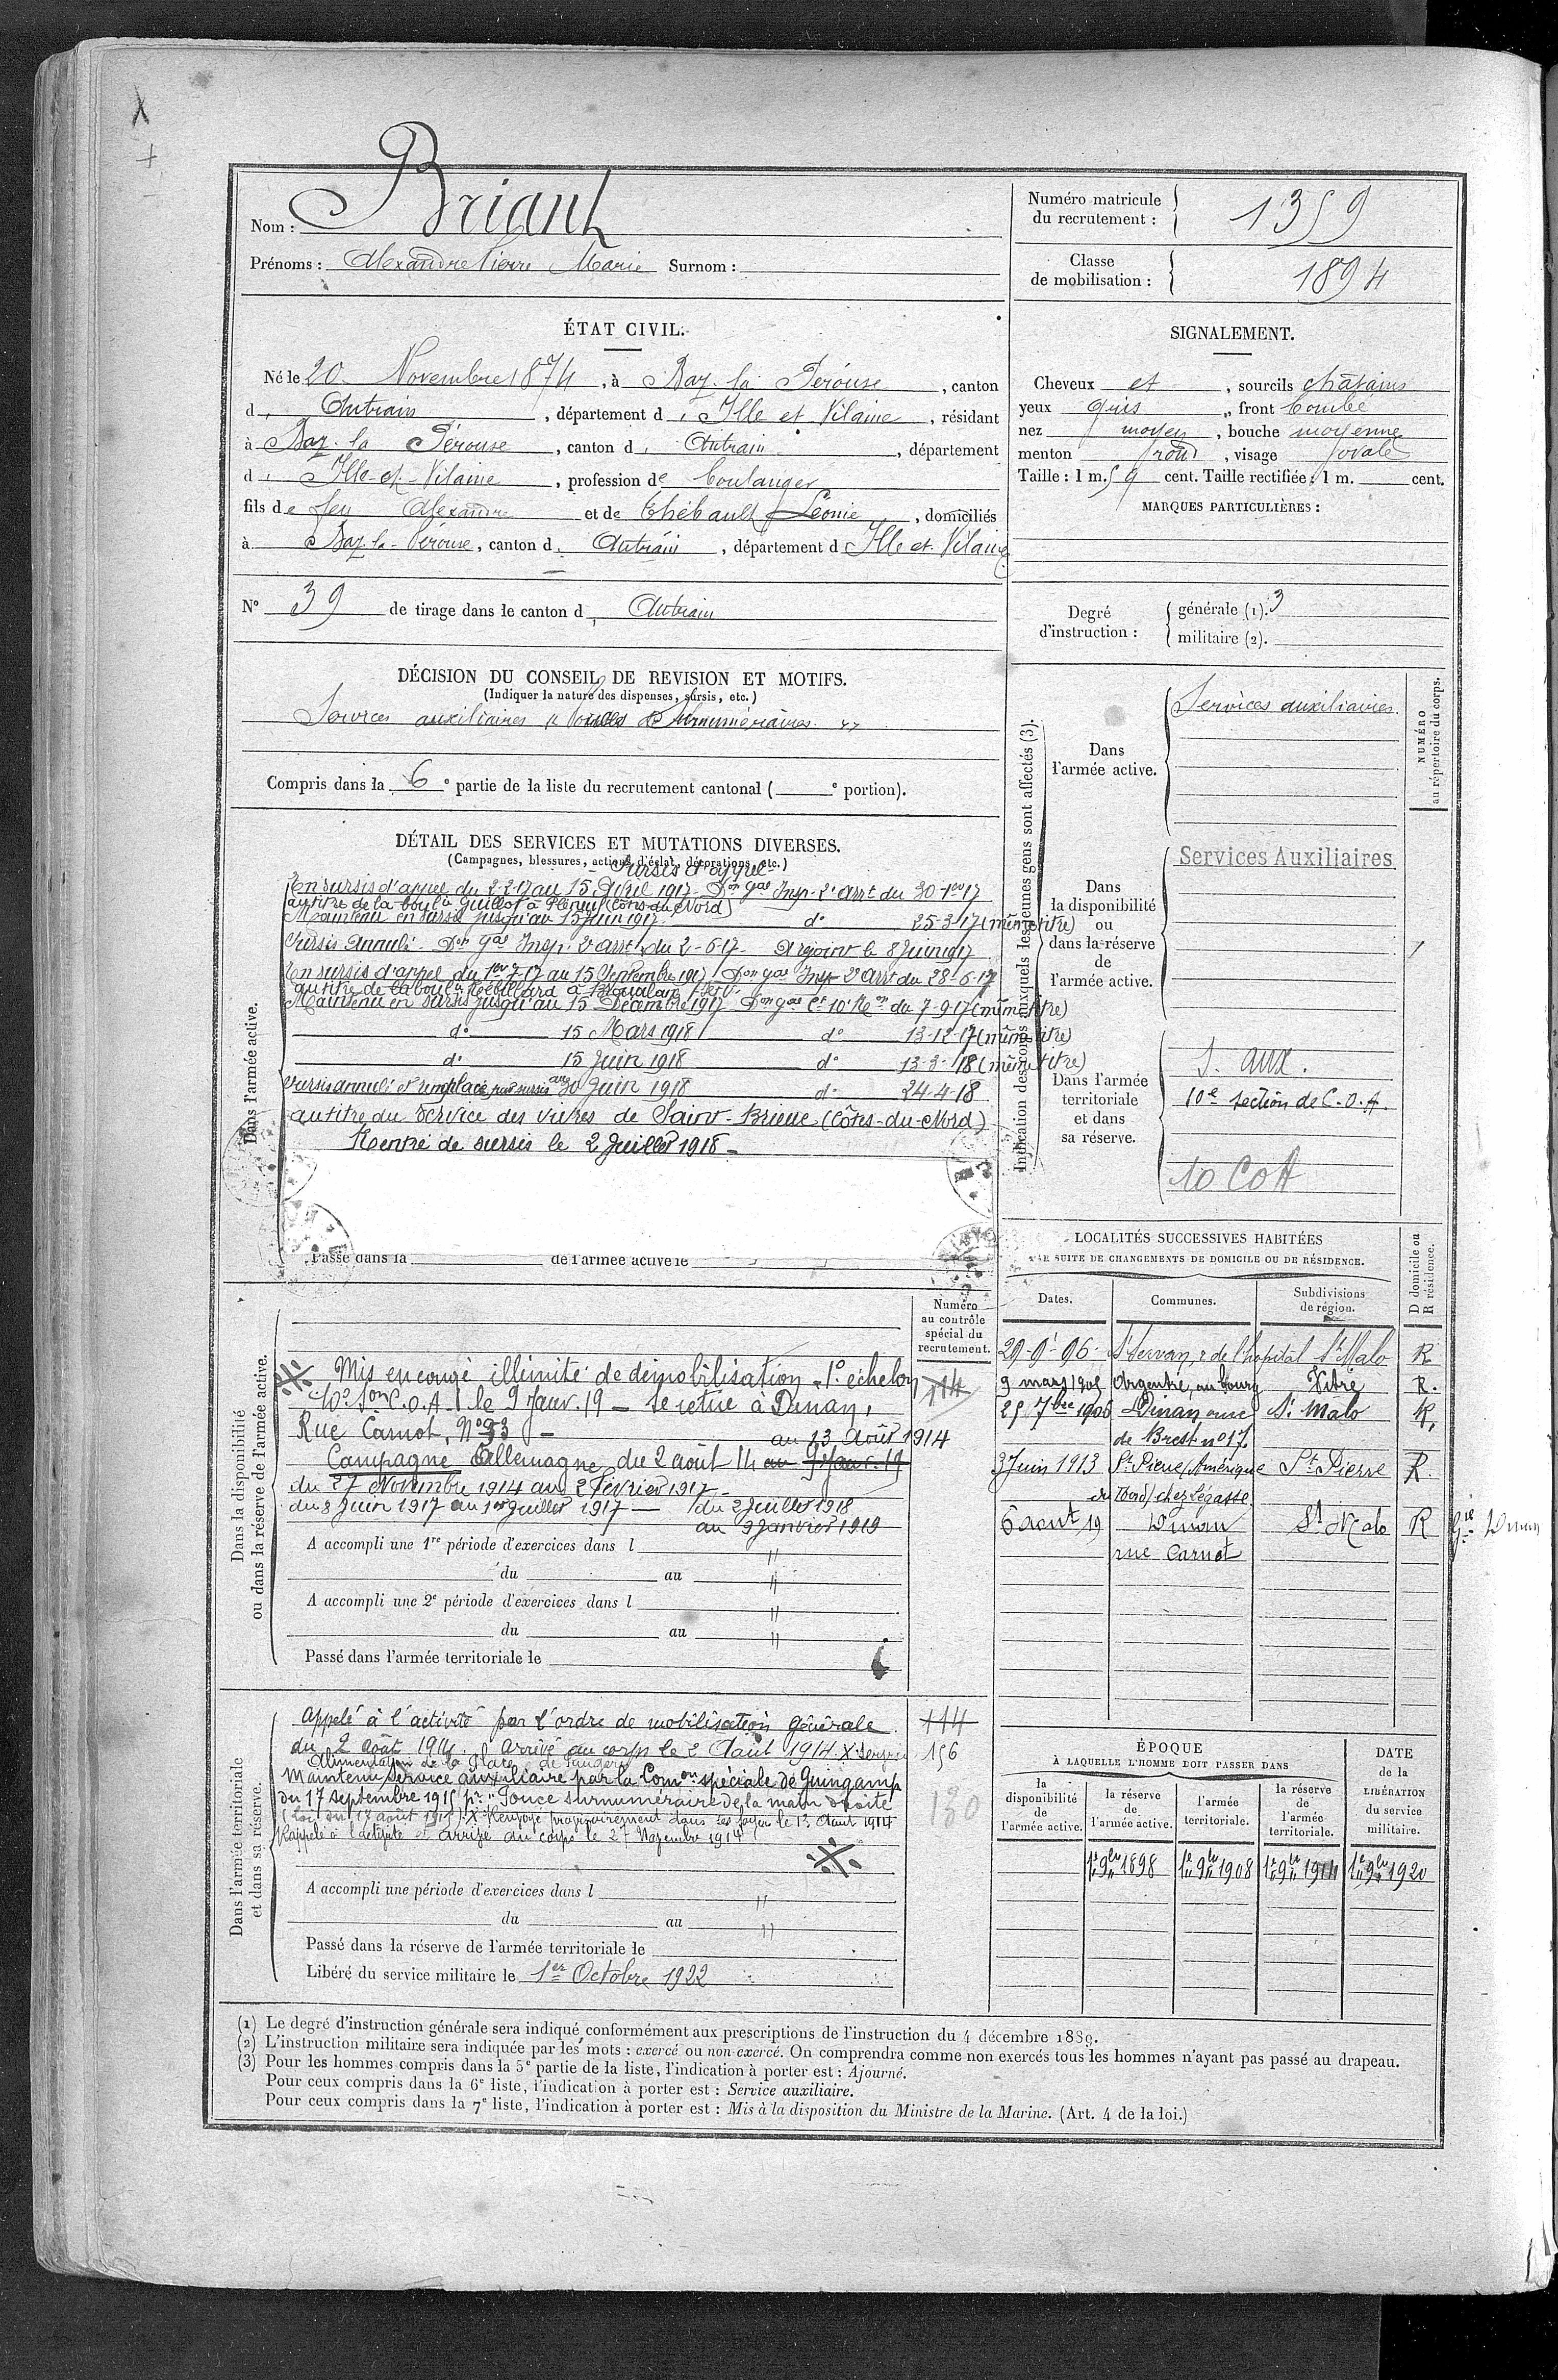 Nom : Briant
Prénoms : Alexandre Pierre Marie Surnom :
Numéro matricule du recrutement : 1359
Classe de mobilisation : 1894
ÉTAT CIVIL.
Né le 20 Novembre 1874, à Baz. la Pérouse, canton
d Antrain, département d Ille et Vilaine, résidant
à Baz. la Pérouse, canton d Antrain, département
d Ille-et-Vilaine, profession de boulanger
fils de feu Alexandre et de Thébault Léonie, domiciliés
à Baz-la-Pérouse, canton d Antrain, département d Ille et Vilaine
N° 39 de tirage dans le canton d Antrain
SIGNALEMENT.
Cheveux et, sourcils châtains
yeux gris, front bombé
nez moyen, bouche moyenne
menton rond, visage ovale
Taille : 1 m. 59 cent. Taille rectifiée : 1 m. cent.
MARQUES PARTICULIÈRES :
Degré d'instruction : générale (1). 3
militaire (2).
DÉCISION DU CONSEIL DE REVISION ET MOTIFS.
(Indiquer la nature des dispenses, sursis, etc.)
Services auxiliaires
Compris dans la 6e partie de la liste du recrutement cantonal ( e portion).
DÉTAIL DES SERVICES ET MUTATIONS DIVERSES.
(Campagnes, blessures, actions d'éclat, décorations, etc.)
Sursis d'appel
Dans l'armée active.
En sursis d'appel du 2-2-17 au 15 Avril 1917 - Don Gal Insp. 2e Arrt du 30-1er-17
au titre de la boulie Guillot à Pléneuf (Côtes-du-Nord)
Maintenu en sursis jusqu'au 15 Juin 1917 do 25-3-17 (même titre)
Sursis annulé - Don Gal Insp. 2e arrt du 2-6-17 - A rejoint le 8 Juin 1917
En sursis d'appel du 1er 7-17 au 15 Septembre 1917 Don gal Insp 2e Arrt du 28-6-17
au titre de la boulie
Maintenu en sursis jusqu'au 15 Décembre 1917 Don gal Ct 10e Ron du 7-9-17 (même titre)
do 15 Mars 1918 do 13-12-17 (même titre)
do 15 Juin 1918 do 13-3-18 (même titre)
Sursis annulé et remplacé par sursis au 30 Juin 1918 do 24-4-18
au titre du Service des vivres de Saint-Brieuc (Côtes-du-Nord)
Rentré de sursis le 2 Juillet 1918 -
Passé dans la de l'armée active le
Indication des corps auxquels les jeunes gens sont affectés (3).
NUMÉRO au répertoire du corps.
Dans l'armée active.
Services auxiliaires.
Dans la disponibilité ou dans la réserve de l'armée active.
Services Auxiliaires
Dans l'armée territoriale et dans sa réserve.
S. aux.
10e section de C.O.A.
10 COA
LOCALITÉS SUCCESSIVES HABITÉES
PAR SUITE DE CHANGEMENTS DE DOMICILE OU DE RÉSIDENCE.
Dates. Communes. Subdivisions de région. D domicile ou R résidence.
St Servan, r de l'hopital St Malo R
9 mars 1905 Argentré, au bourg Vitré R.
25 7bre 1906 Dinan, rue de Brest no 17 St Malo R.
3 Juin 1913 St Pierre (Amérique du Nord) chez Légasse St Pierre R.
6 aout 19 Dinan rue Carnot St Malo R
Dans la disponibilité ou dans la réserve de l'armée active.
Numéro au contrôle spécial du recrutement.
114
Mis en congé illimité de démobilisation 1° échelon
10e Son C.O.A. le 9 Janv. 19 - se retire à Dinan,
Rue Carnot, N°
au 13 Août 1914
Campagne Allemagne du 2 août 14 au 9 Janv. 19
du 27 Novembre 1914 au 2 Février 1917 -
du 8 Juin 1917 au 1er Juillet 1917 - du 2 Juillet 1918
au 9 Janvier 1919
A accompli une 1re période d'exercices dans l
du au
A accompli une 2e période d'exercices dans l
du au
Passé dans l'armée territoriale le
Dans l'armée territoriale et dans sa réserve.
114
156
130
Appelé à l'activité par l'ordre de mobilisation générale
du 2 août 1914. Arrivé au corps le 2 Août 1914. X
Alimentation de la place de
Maintenu service auxiliaire par la Comon spéciale de Guingamp
du 17 septembre 1915 pr "Pouce surnuméraire de la main droite
(Loi du 17 août 1915). X Renvoyé provisoirement dans ses foyers le 13 Août 1914
Rappelé à l'activité et arrivé au corps le 27 Novembre 1914
A accompli une période d'exercices dans l
du au
Passé dans la réserve de l'armée territoriale le
Libéré du service militaire le 1er Octobre 1922
ÉPOQUE
À LAQUELLE L'HOMME DOIT PASSER DANS
la disponibilité de l'armée active. la réserve de l'armée active. l'armée territoriale. la réserve de l'armée territoriale.
DATE de la LIBÉRATION du service militaire.
1er 9bre 1898 1er 9bre 1908 1er 9bre 1914 1er 9bre 1920
(1) Le degré d'instruction générale sera indiqué conformément aux prescriptions de l'instruction du 4 décembre 1889.
(2) L'instruction militaire sera indiquée par les mots : exercé ou non exercé. On comprendra comme non exercés tous les hommes n'ayant pas passé au drapeau.
(3) Pour les hommes compris dans la 5e partie de la liste, l'indication à porter est : Ajourné.
Pour ceux compris dans la 6e liste, l'indication à porter est : Service auxiliaire.
Pour ceux compris dans la 7e liste, l'indication à porter est : Mis à la disposition du Ministre de la Marine. (Art. 4 de la loi.)